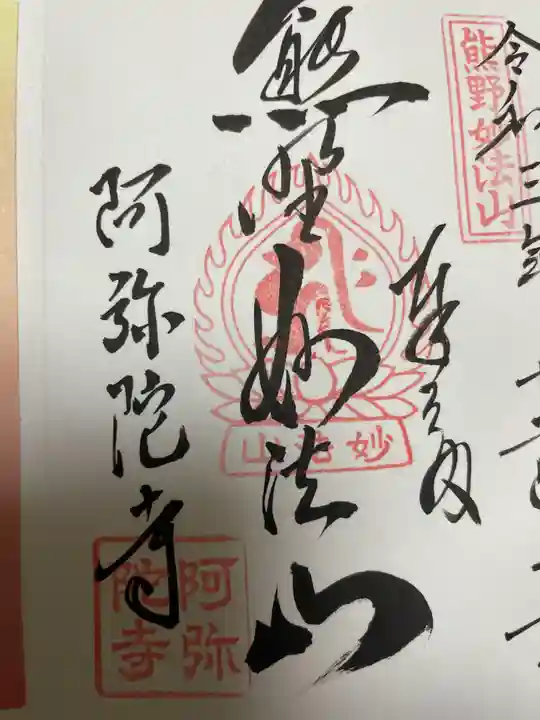 熊野妙法山
令和三年
奉拝
熊野妙法山
山法妙
阿弥陀寺
阿弥陀寺